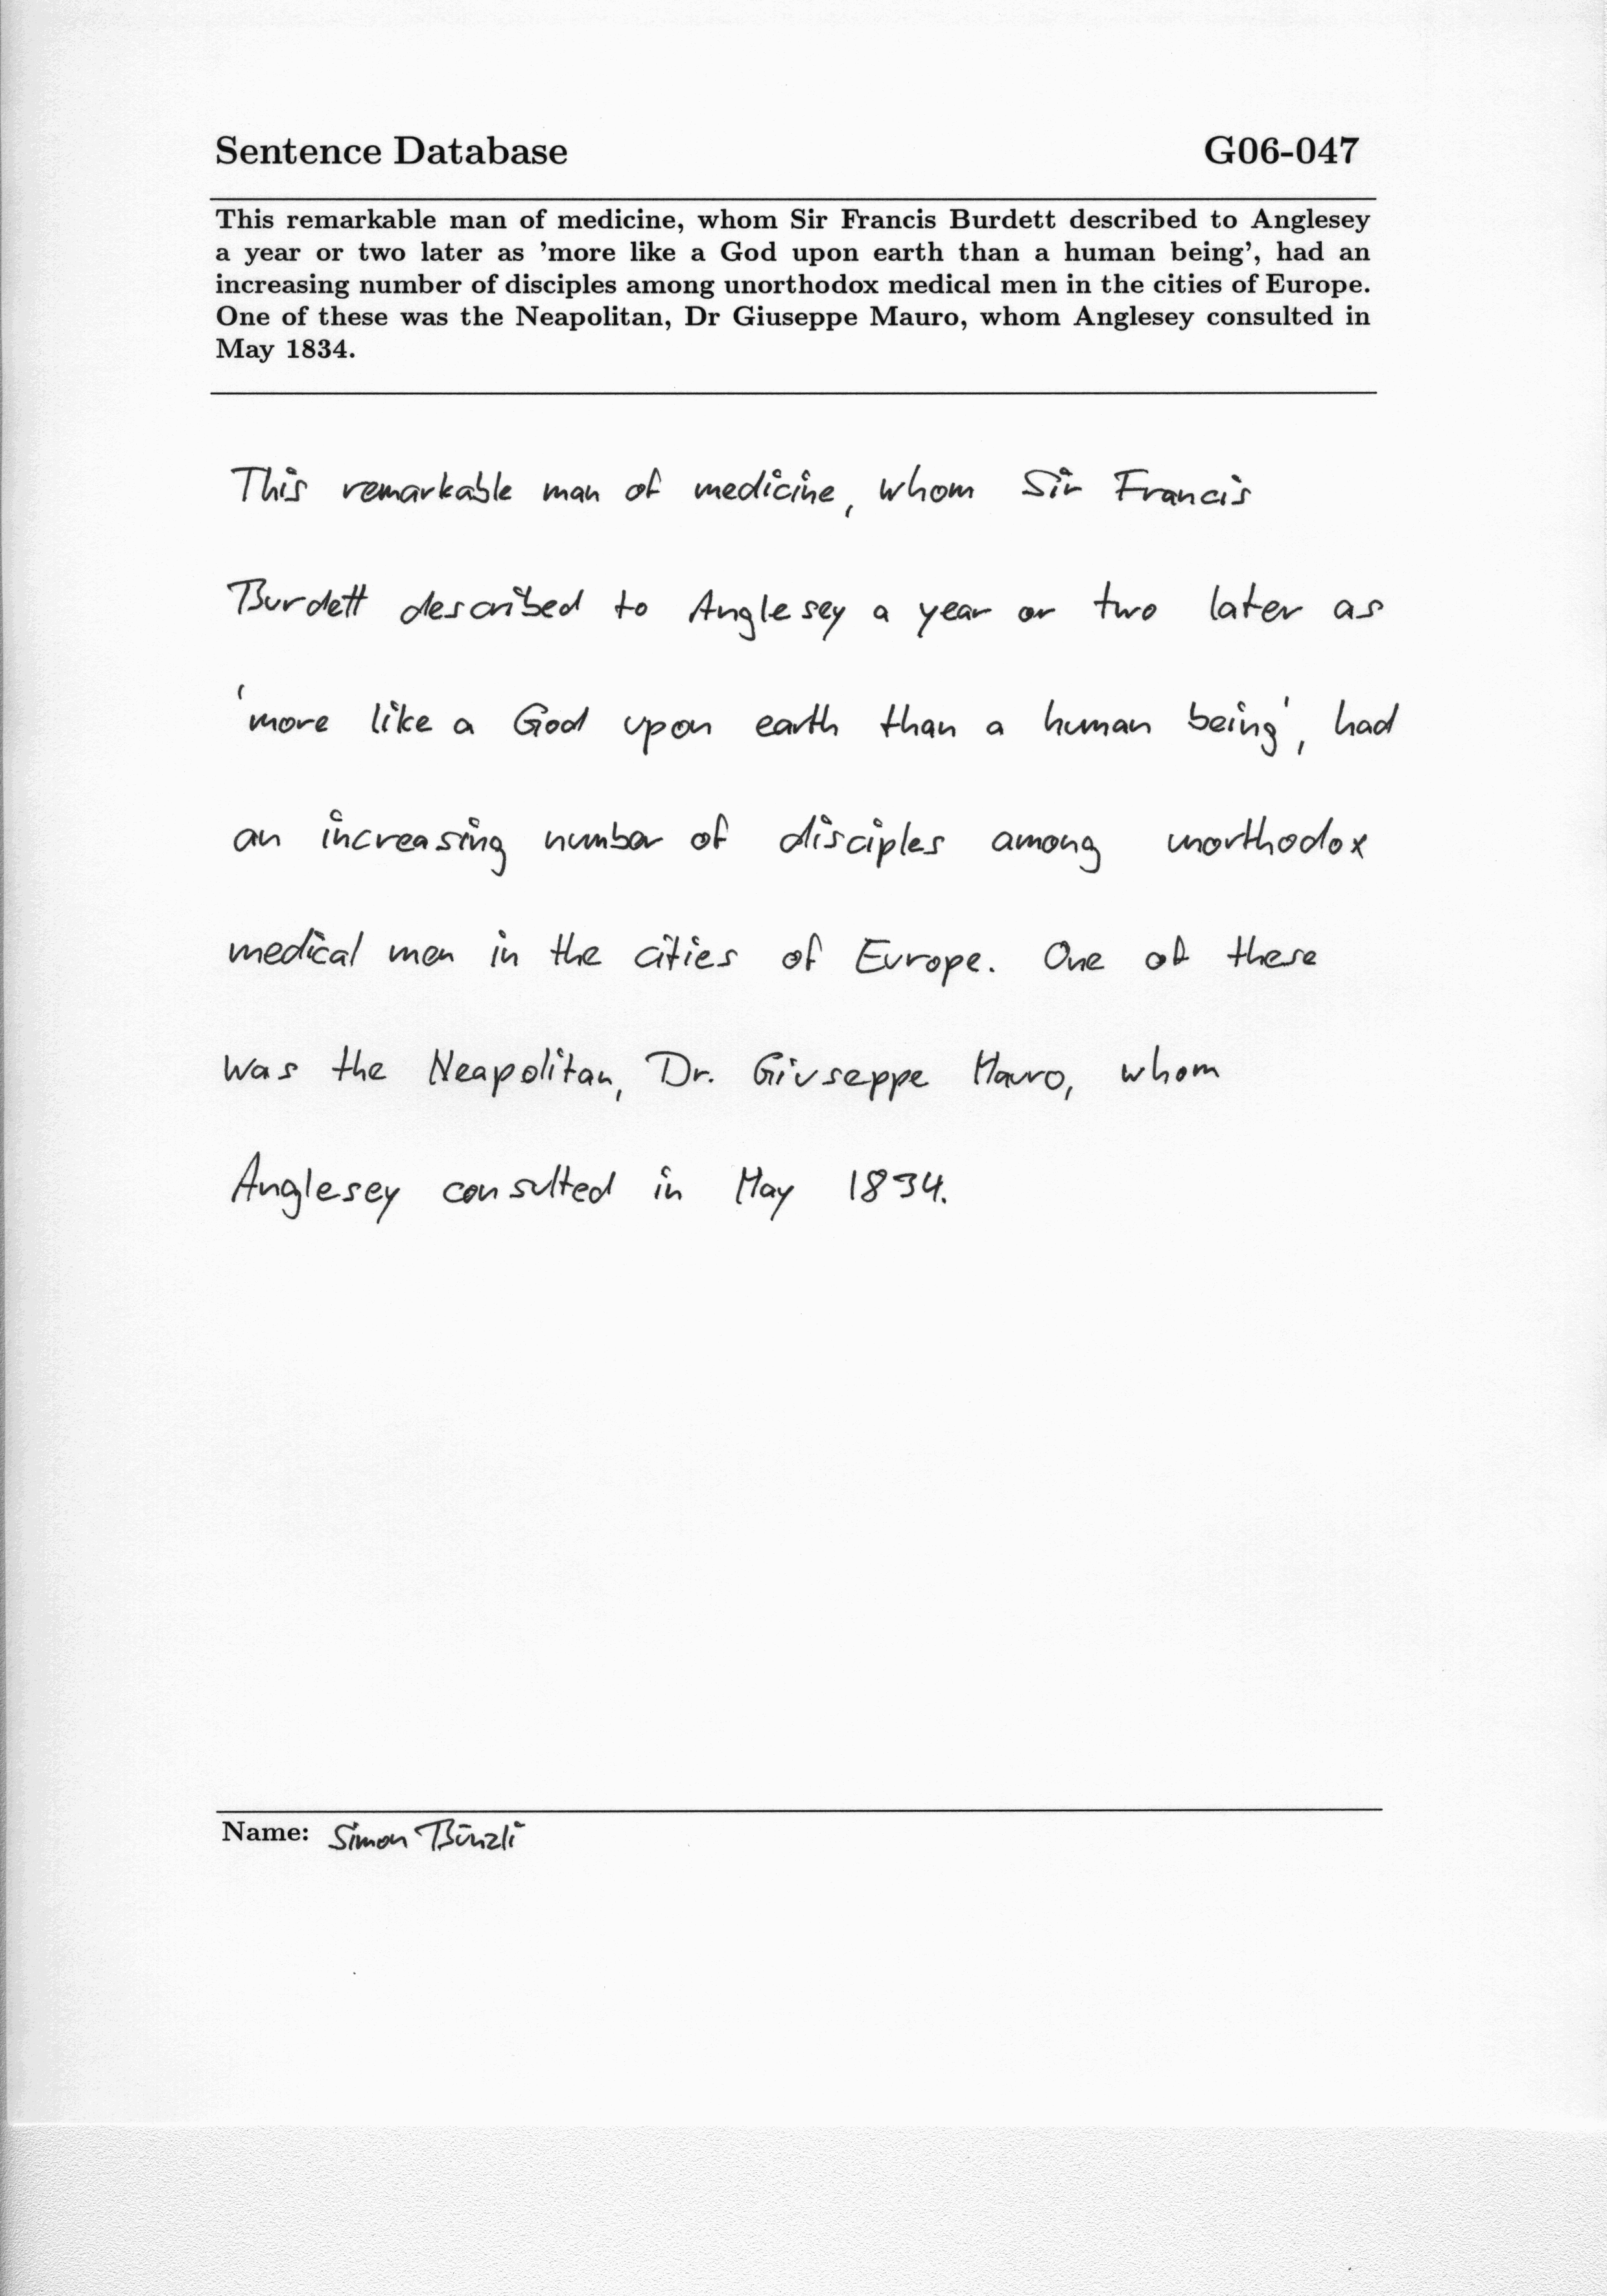 Sentence Database G06-047
This remarkable man of medicine, whom Sir Francis Burdett described to Anglesey
a year or two later as 'more like a God upon earth than a human being', had an
increasing number of disciples among unorthodox medical men in the cities of Europe.
One of these was the Neapolitan, Dr Giuseppe Mauro, whom Anglesey consulted in
May 1834.
This remarkable man of medicine, whom Sir Francis
Burdett described to Anglesey a year or two later as
'more like a God upon earth than a human being', had
an increasing number of disciples among unorthodox
medical men in the cities of Europe. One of these
was the Neapolitan, Dr. Giuseppe Mauro, whom
Anglesey consulted in May 1834.
Name: Simon Bünzli